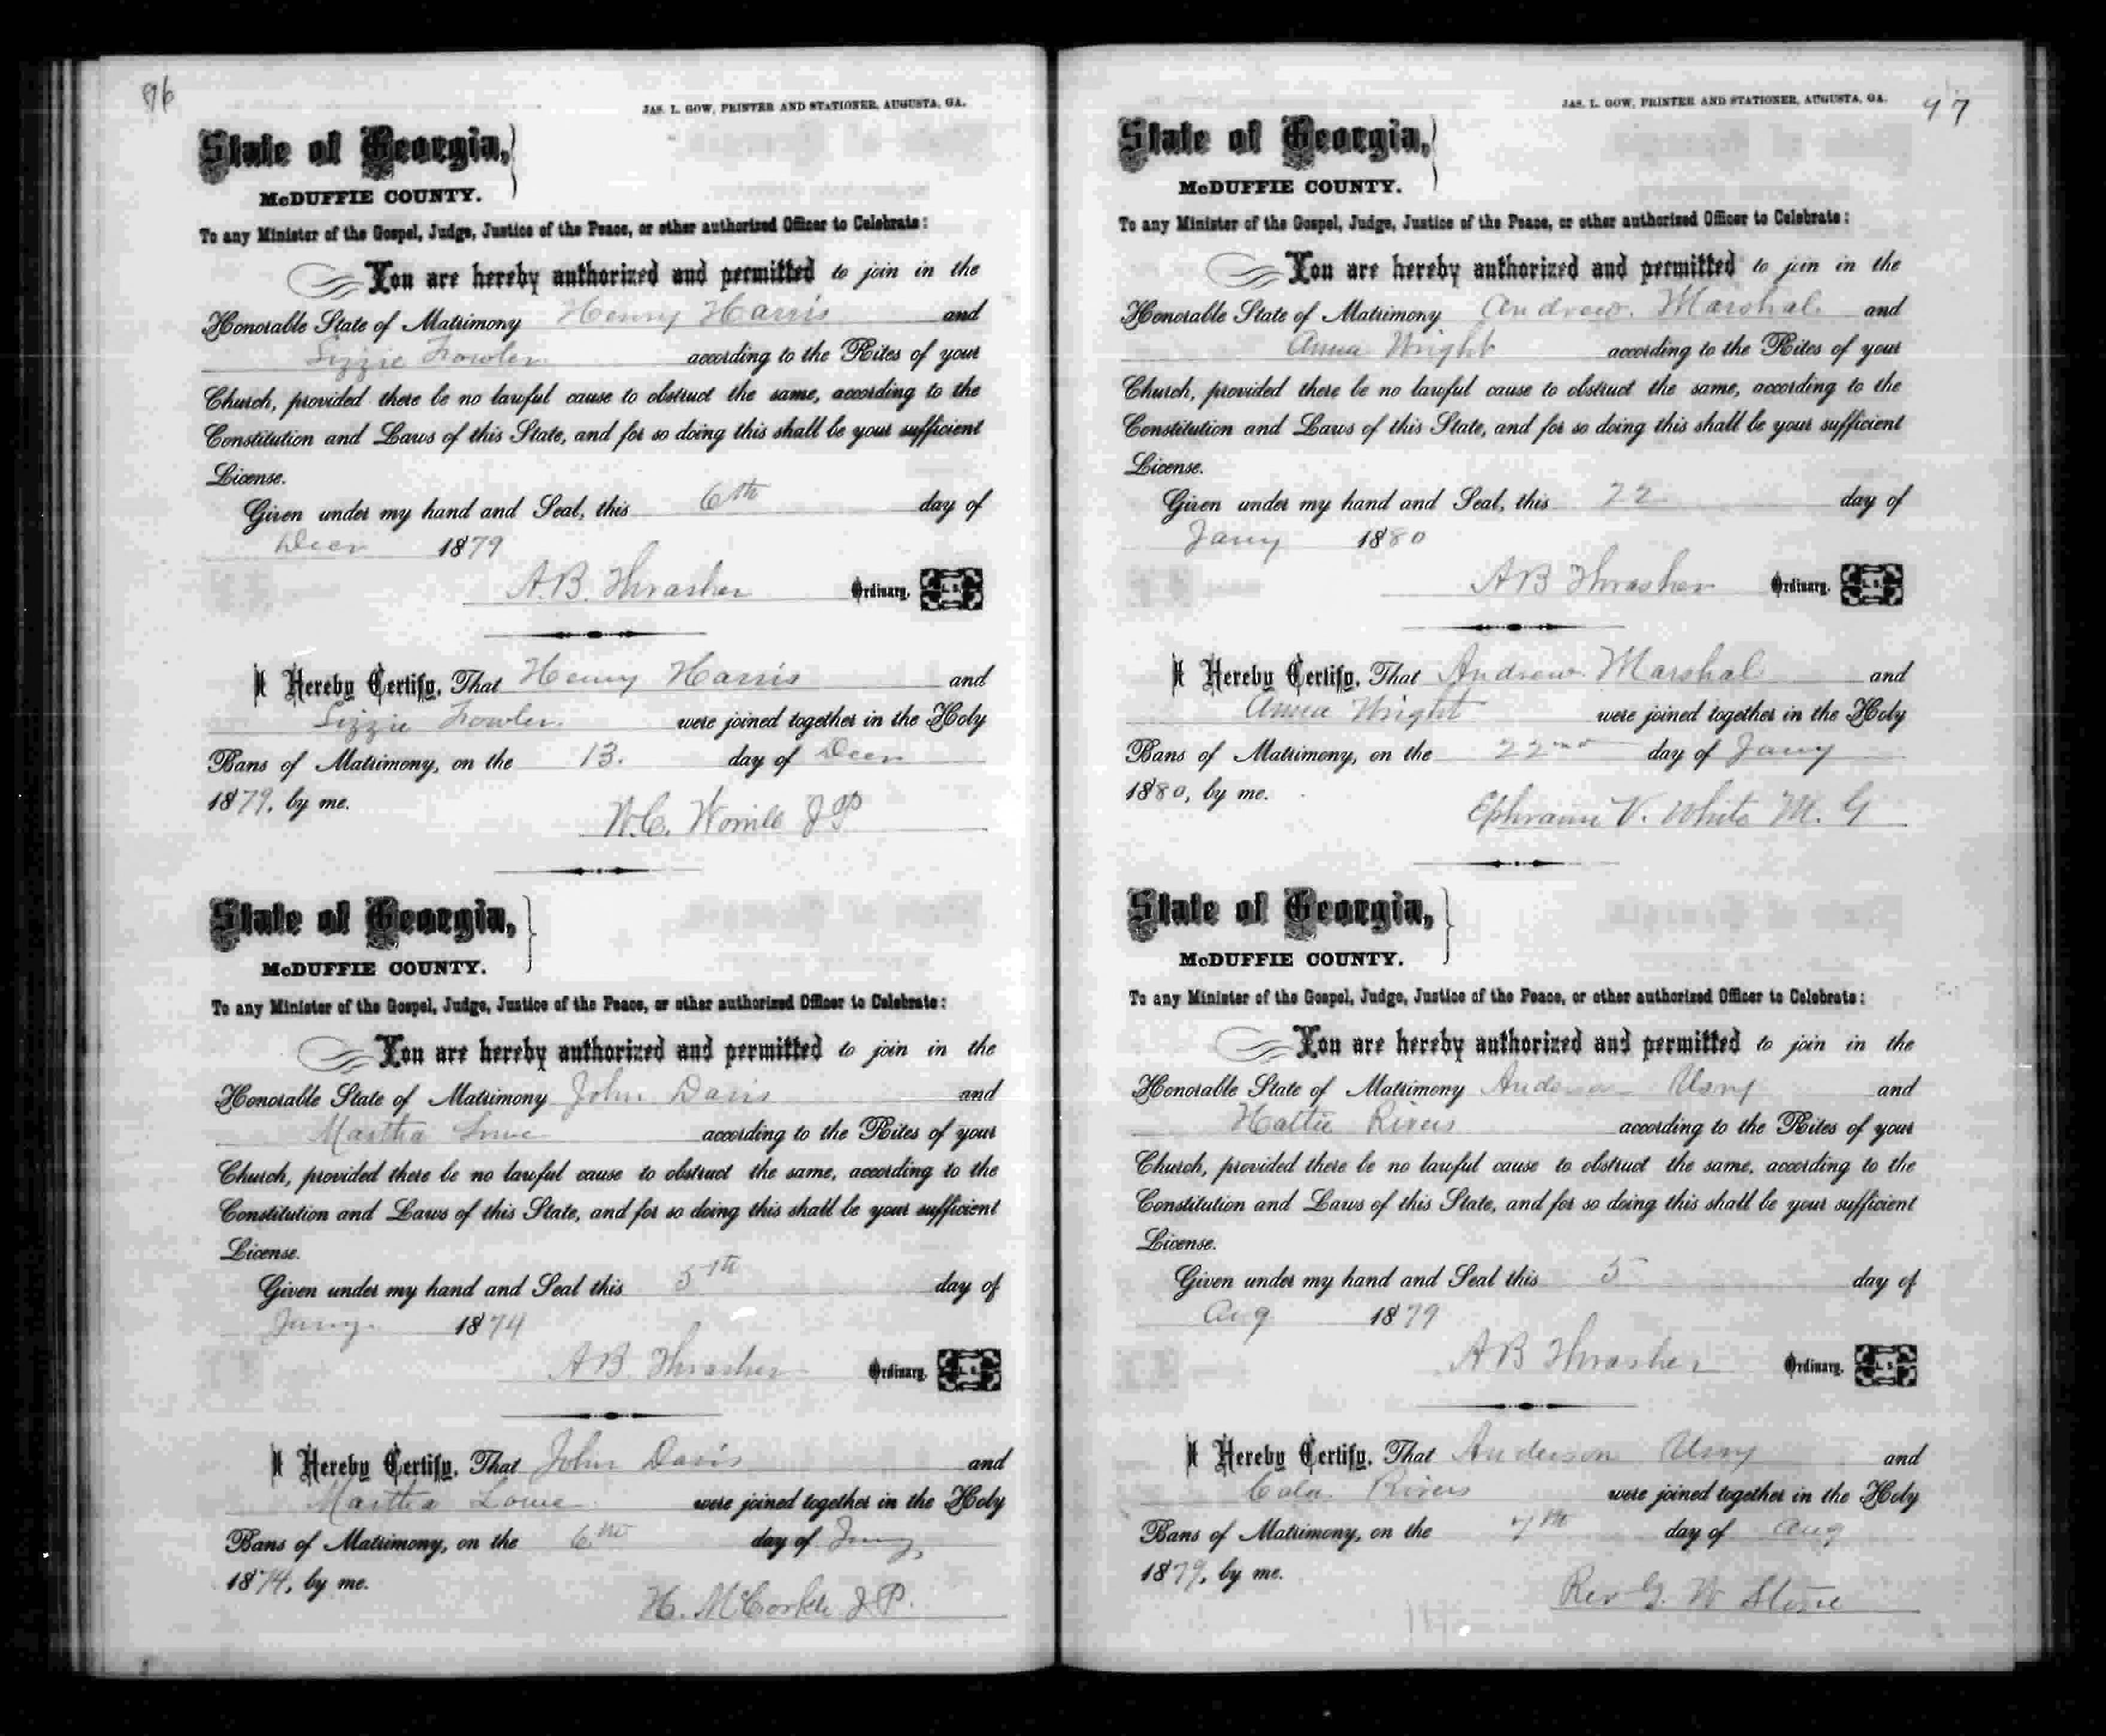 96
JAS. L. GOW, PRINTER AND STATIONER, AUGUSTA, GA.
State of Georgia,
McDUFFIE COUNTY.
To any Minister of the Gospel, Judge, Justice of the Peace, or other authorized Officer to Celebrate:
You are hereby authorized and permitted to join in the
Honorable State of Matrimony Henry Harris and
Lizzie Fowler according to the Rites of your
Church, provided there be no lawful cause to obstruct the same, according to the
Constitution and Laws of this State, and for so doing this shall be your sufficient
License.
Given under my hand and Seal, this 6th day of
Decr 1879
A.B. Thrasher Ordinary. L. S.
I Hereby Certify, That Henry Harris and
Lizzie Fowler were joined together in the Holy
Bans of Matrimony, on the 13. day of Decr
1879, by me.
W.C. J P
State of Georgia,
McDUFFIE COUNTY.
To any Minister of the Gospel, Judge, Justice of the Peace, or other authorized Officer to Celebrate:
You are hereby authorized and permitted to join in the
Honorable State of Matrimony John Davis and
Martha Lowe according to the Rites of your
Church, provided there be no lawful cause to obstruct the same, according to the
Constitution and Laws of this State, and for so doing this shall be your sufficient
License.
Given under my hand and Seal this 5th day of
1874
A B Thrasher Ordinary. L. S.
I Hereby Certify, That John Davis and
Martha Lowe were joined together in the Holy
Bans of Matrimony, on the 6th day of
1874, by me.
H. McCorkle J.P.
JAS. L. GOW, PRINTER AND STATIONER, AUGUSTA, GA.
97
State of Georgia,
McDUFFIE COUNTY.
To any Minister of the Gospel, Judge, Justice of the Peace, or other authorized Officer to Celebrate:
You are hereby authorized and permitted to join in the
Honorable State of Matrimony Andrew Marshal and
Anna Wright according to the Rites of your
Church, provided there be no lawful cause to obstruct the same, according to the
Constitution and Laws of this State, and for so doing this shall be your sufficient
License.
Given under my hand and Seal, this 22 day of
Jany 1880
A B Thrasher Ordinary. L. S.
I Hereby Certify, That Andrew Marshal and
Anna Wright were joined together in the Holy
Bans of Matrimony, on the 22nd day of Jany
1880, by me.
Ephraim V. White M. G
State of Georgia,
McDUFFIE COUNTY.
To any Minister of the Gospel, Judge, Justice of the Peace, or other authorized Officer to Celebrate:
You are hereby authorized and permitted to join in the
Honorable State of Matrimony Anderson Usry and
Hattie Rivers according to the Rites of your
Church, provided there be no lawful cause to obstruct the same, according to the
Constitution and Laws of this State, and for so doing this shall be your sufficient
License.
Given under my hand and Seal this 5 day of
Aug 1879
A B Thrasher Ordinary. L. S.
I Hereby Certify, That Anderson Usry and
Rivers were joined together in the Holy
Bans of Matrimony, on the 7th day of Aug
1879, by me.
Rev G. W Stone